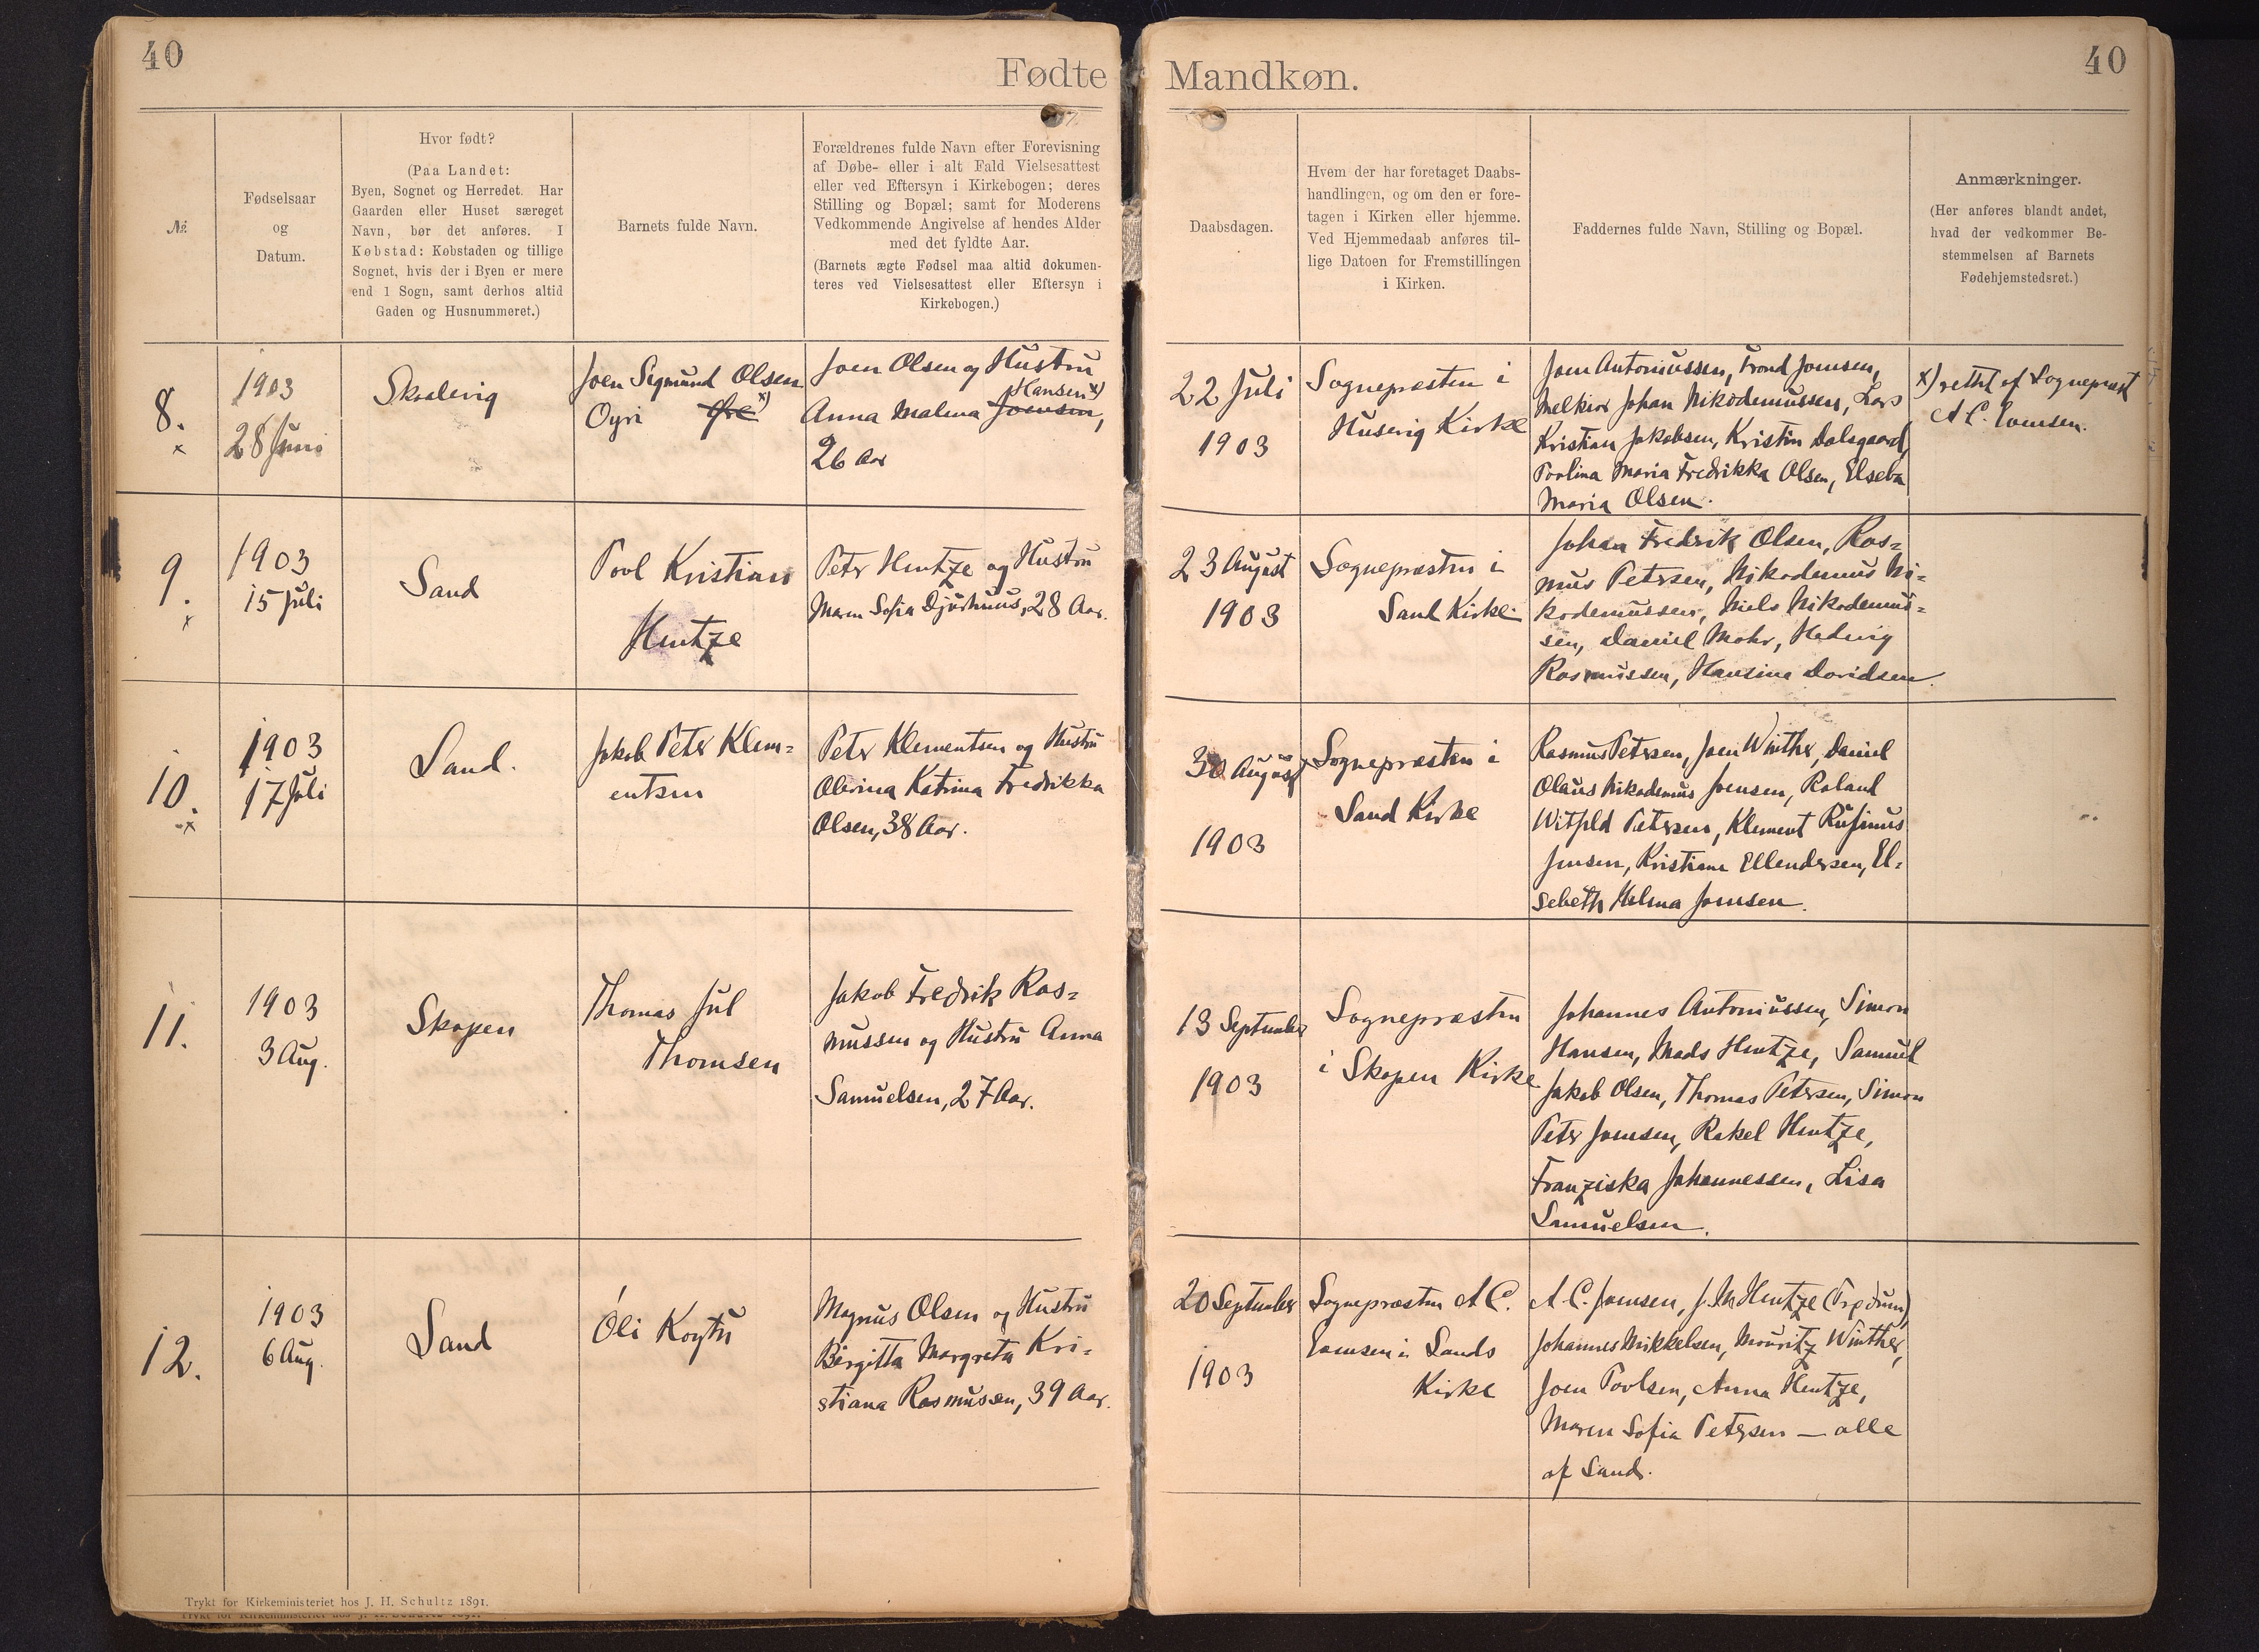 40
Fødte
Mandkøn.
40
№
Fødselsaar
og
Datum.
Hvor født?
(Paa Landet:
Byen, Sognet og Herredet. Har
Gaarden eller Huset særeget
Navn, bør det anføres. I
Købstad: Købstaden og tillige
Sognet, hvis der i Byen er mere
end 1 Sogn, samt derhos altid
Gaden og Husnummeret.)
Barnets fulde Navn.
Forældrenes fulde Navn efter Forevisning
af Døbe- eller i alt Fald Vielsesattest
eller ved Eftersyn i Kirkebogen; deres
Stilling og Bopæl; samt for Moderens
Vedkommende Angivelse af hendes Alder
med det fyldte Aar.
(Barnets ægte Fødsel maa altid dokumen-
teres ved Vielsesattest eller Eftersyn i
Kirkebogen.)
Daabsdagen.
Hvem der har foretaget Daabs-
handlingen, og om den er fore-
tagen i Kirken eller hjemme.
Ved Hjemmedaab anføres til-
lige Datoen for Fremstillingen
i Kirken.
Faddernes fulde Navn, Stilling og Bopæl.
Anmærkninger.
(Her anføres blandt andet,
hvad der vedkommer Be-
stemmelsen af Barnets
Fødehjemstedsret.)
8.
x
1903
28 Juni
Skaalevig
Joen Sigmund Olsen
Oyri Øre x)
Joen Olsen og Hustru
Hansen x)
Anna Malena Joensen,
26 Aar
22 Juli
1903
Sognepræsten i
Husevig Kirke
Joen Antoniussen, Trond Joensen,
Melkior Johan Nikodemussen, Lars
Kristian Jakobsen, Kristin Dalsgaard,
Poolina Maria Fredrikka Olsen, Elseba
Maria Olsen.
x) rettet af Sognepræst
A C. Evensen.
9.
x
1903
15 Juli
Sand
Poul Kristian
Hentze
Peter Hentze og Hustru
Maren Sofia Djurhuus, 28 Aar.
23 August
1903
Sognepræsten i
Sand Kirke
Johan Fredrik Olsen, Ras=
mus Petersen, Nikodemus Ni=
kodemussen, Niels Nikodemus=
sen, Daniel Mohr, Hedvig
Rasmussen, Hansine Davidsen.
10.
x
1903
17 Juli
Sand.
Jakob Peter Klem=
entsen
Peter Klementsen og Hustru
Olevina Katrina Fredrikka
Olsen, 38 Aar.
30 August
1903
Sognepræsten i
Sand Kirke
Rasmus Petersen, Joen Winther, Daniel
Olaus Nikodemus Joensen, Roland
Witfeld Petersen, Klement Rufinus
Jensen, Kristiane Ellendersen, El=
sebeth Helena Joensen.
11.
1903
3 Aug.
Skopen
Thomas Jul
Thomsen
Jakob Fredrik Ras=
mussen og Hustru Anna
Samuelsen, 27 Aar.
13 September
1903
Sognepræsten
i Skopen Kirke
Johannes Antoniussen, Simon
Hansen, Mads Hentze, Samuel
Jakob Olsen, Thomas Petersen, Simon
Peter Joensen, Rakel Hentze,
Franziska Johannessen, Lisa
Samuelsen.
12.
1903
6 Aug.
Sand
Óli Koytu
Magnus Olsen og Hustru
Birgitta Margreta Kri=
stiana Rasmussen, 39 Aar.
20 September
1903
Sognepræsten A C.
Evensen i Sands
Kirke
A. C. Joensen, J. M Hentze (Trødum),
Johannes Mikkelsen, Mouritz Winther,
Joen Poulsen, Anna Hentze,
Maren Sofia Petersen — alle
af Sand.
Trykt for Kirkeministeriet hos J. H. Schultz 1891.